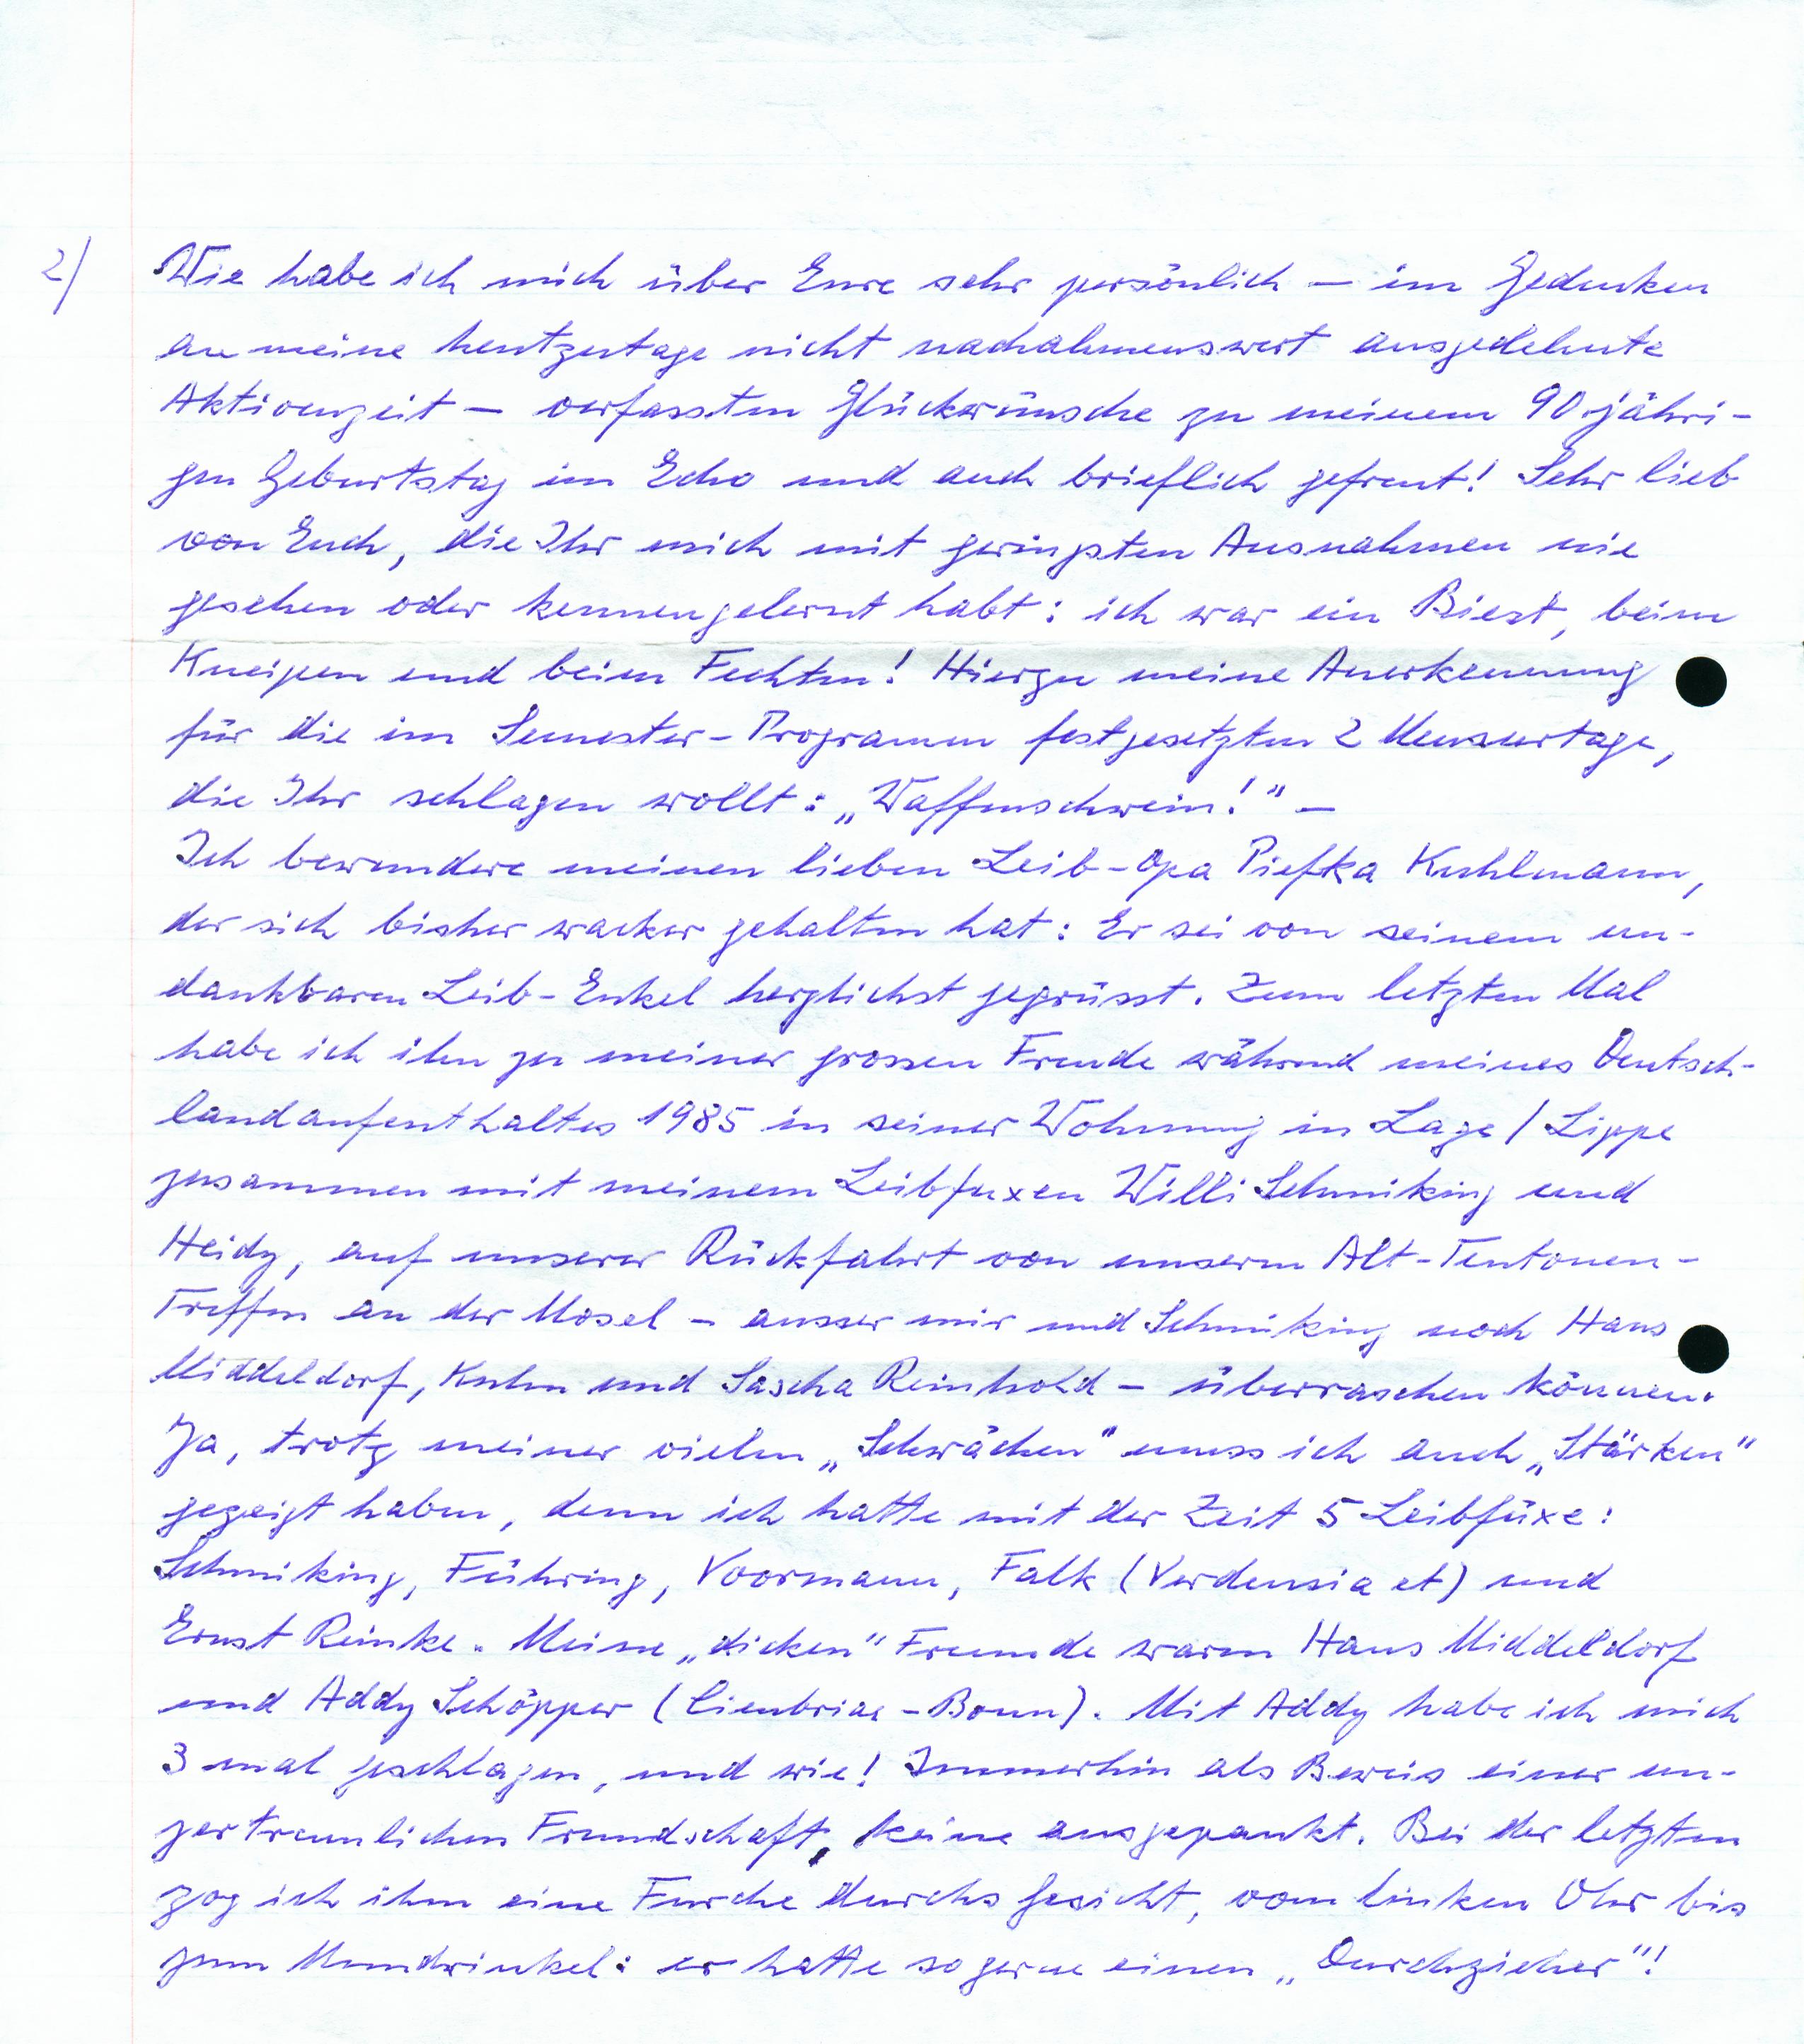 2/
Wie habe ich mich über Eure sehr persönlich – im Gedenken
an meine heutzutage nicht nachahmenswert ausgedehnte
Aktivenzeit – verfassten Glückwünsche zu meinem 90 jähri-
gen Geburtstag im Echo und auch brieflich gefreut! Sehr lieb
von Euch, die Ihr mich mit geringsten Ausnahmen nie
gesehen oder kennengelernt habt: ich war ein Biest, beim
Kneipen und beim Fechten! Hierzu meine Anerkennung
für die im Semester-Programm festgesetzten 2 Mensurtage,
die Ihr schlagen wollt: „Waffenschwein!" –
Ich bewundere meinen lieben Leib-Opa Piefka Kuhlmann,
der sich bisher wacker gehalten hat: Er sei von seinem un-
dankbaren Leib-Enkel herzlichst gegrüsst. Zum letzten Mal
habe ich ihn zu meiner grossen Freude während meines Deutsch-
landaufenthaltes 1985 in seiner Wohnung in Lage / Lippe
zusammen mit meinem Leibfuxen Willi Schmiking und
Heidy, auf unserer Rückfahrt von unserm Alt-Teutonen-
Treffen an der Mosel – ausser mir und Schmiking noch Hans
Middeldorf, Kuhn und Sascha Reinhold – überraschen können.
Ja, trotz meiner vielen „Schwächen" muss ich auch „Stärken"
gezeigt haben, denn ich hatte mit der Zeit 5 Leibfüxe:
Schmiking, Führing, Voormann, Falk (Verdensia et) und
Ernst Reinke. Meine „dicken" Freunde waren Hans Middeldorf
und Addy Schöpper (Cimbriae-Bonn). Mit Addy habe ich mich
3 mal geschlagen, und wie! Immerhin als Beweis einer un-
zertrennlichen Freundschaft, keine ausgepaukt. Bei der letzten
zog ich ihm eine Furche durchs Gesicht, vom linken Ohr bis
zum Mundwinkel: er hatte so gerne einen „Durchzieher"!